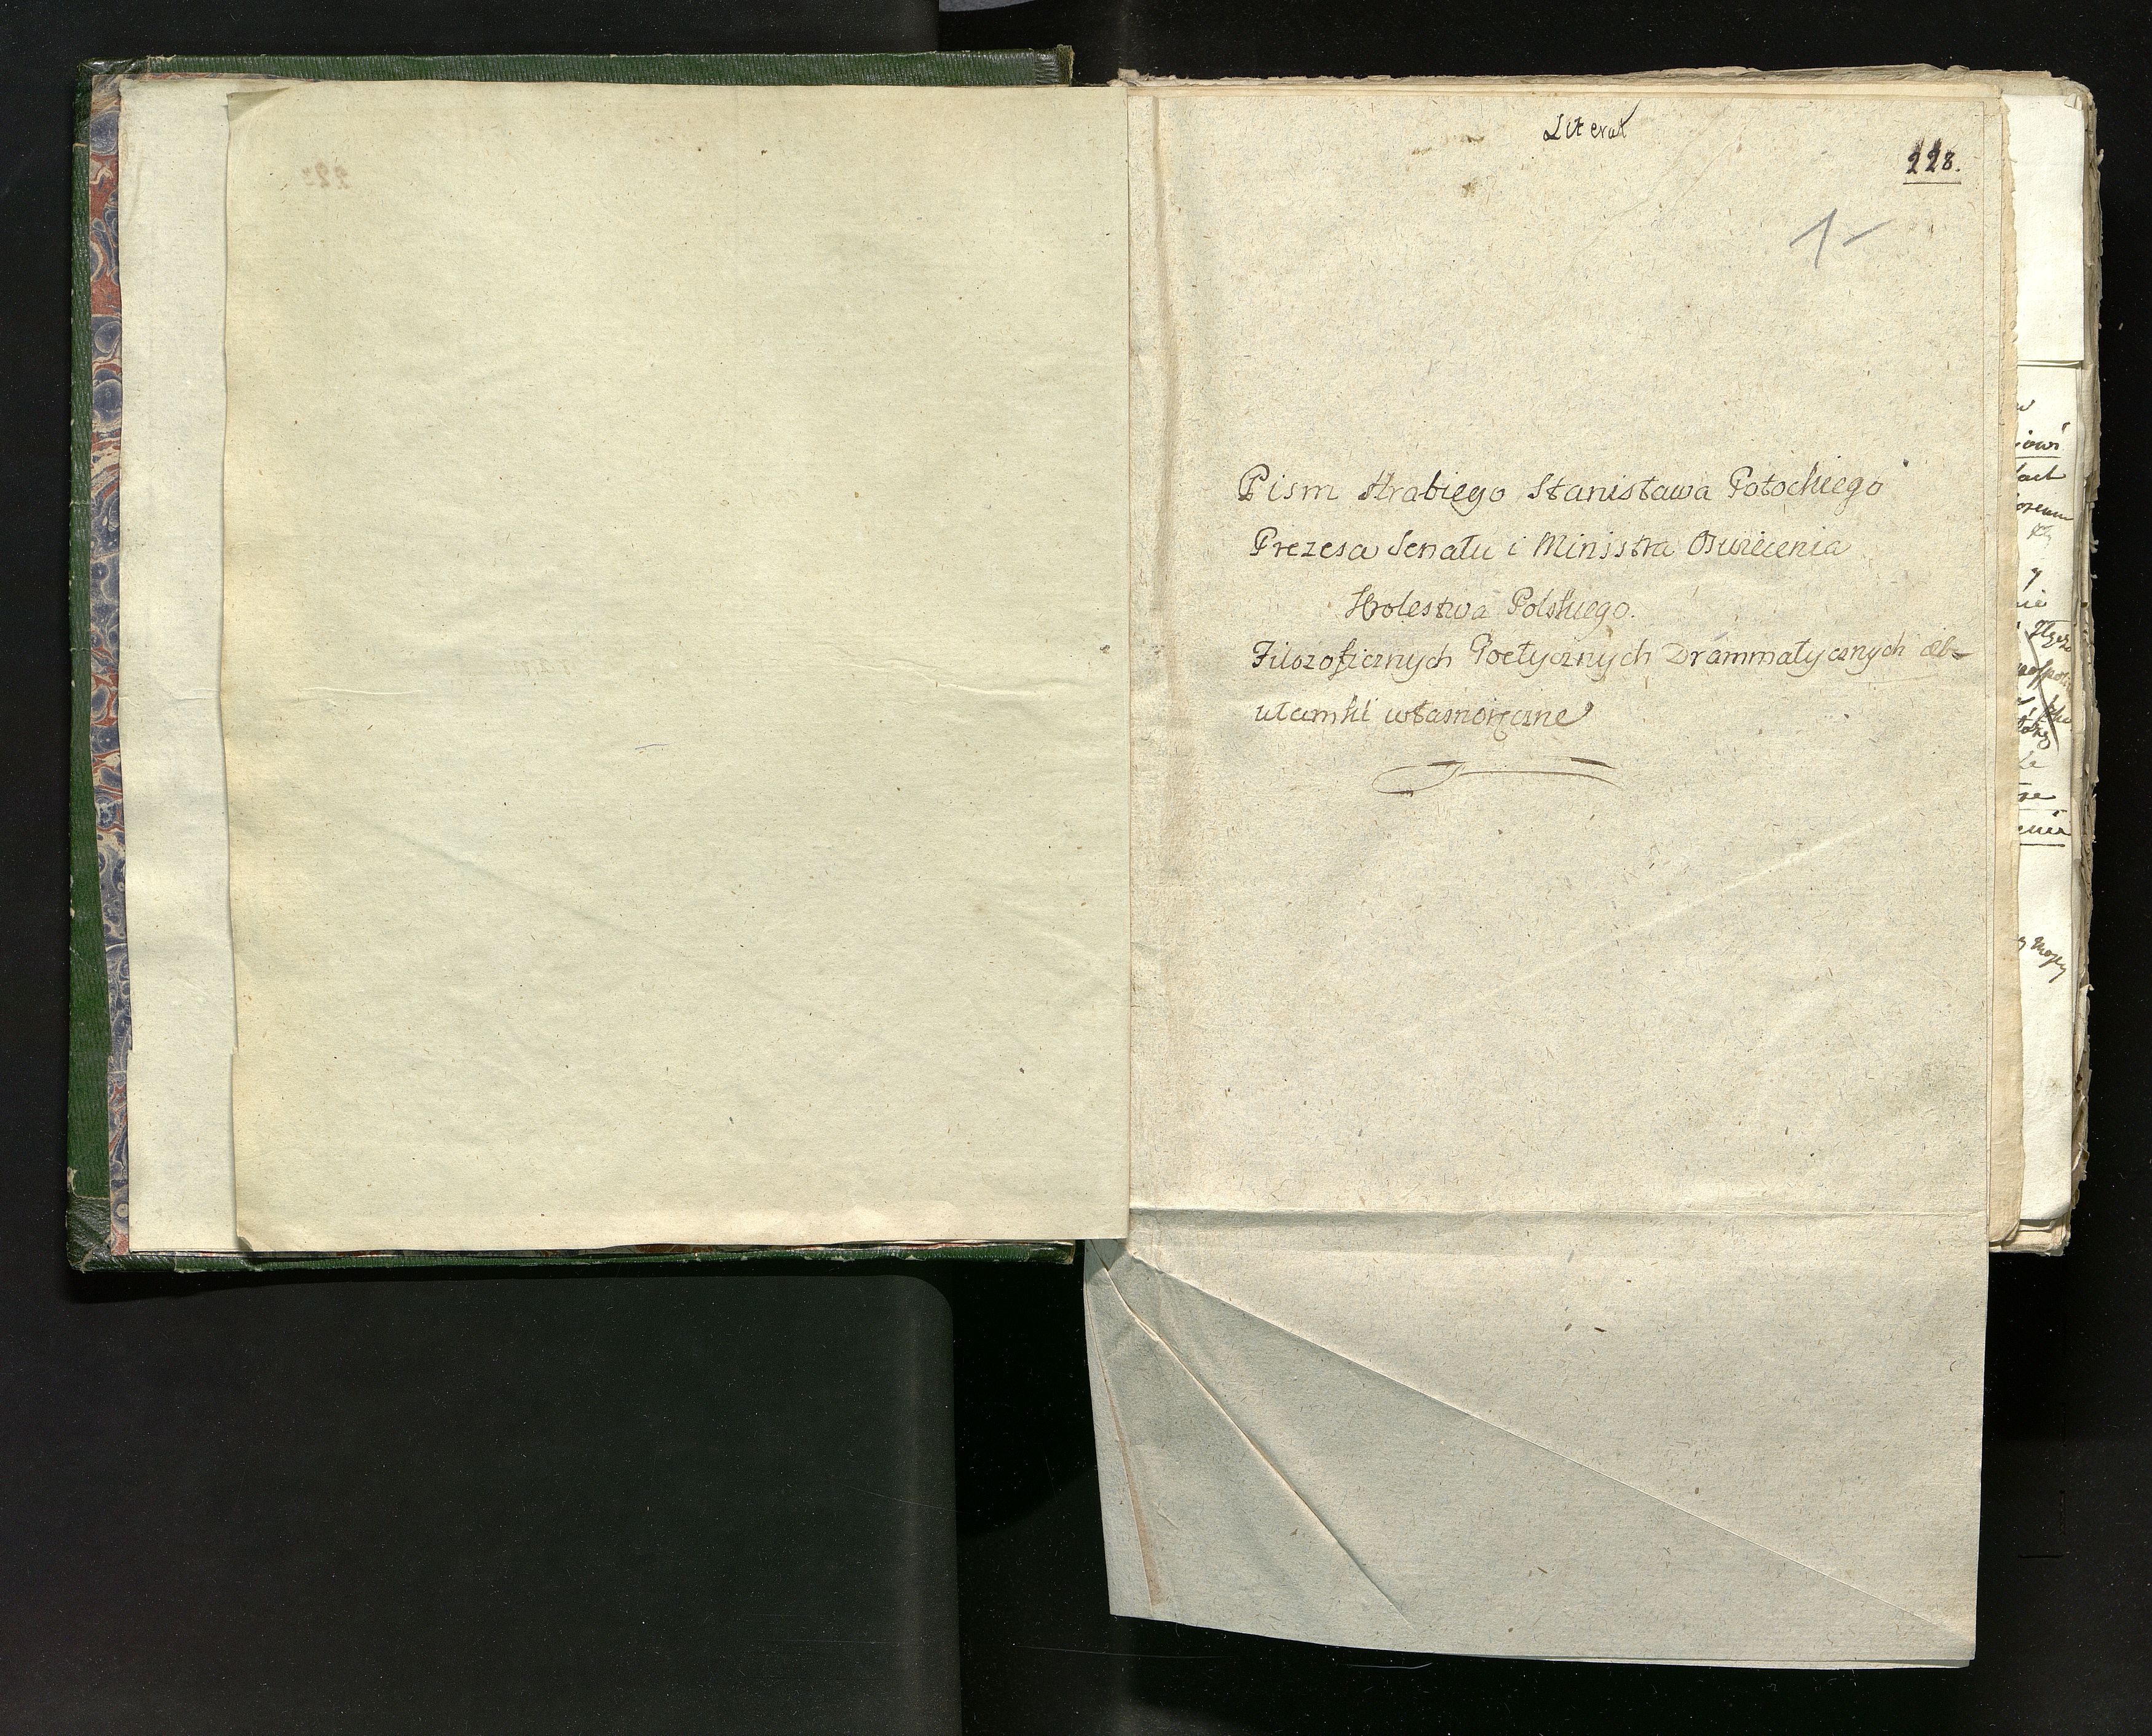 Literat
228.
1
Pism Hrabiego Stanisława Potockiego
Prezesa Senatu i Ministra Oswiecenia
Krolestwa Polskiego.
Filozoficznych Poetycznych Drammatycznych
ułamki własnoręczne